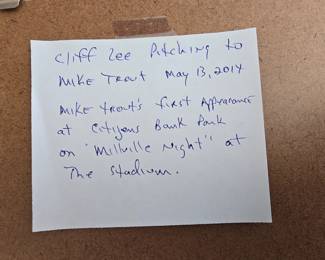 Cliff Lee Pitching to
Mike Trout May 13, 2014
Mike Trout's first Appearance
at Citizens Bank Park
on "Millville Night" at
The Stadium.